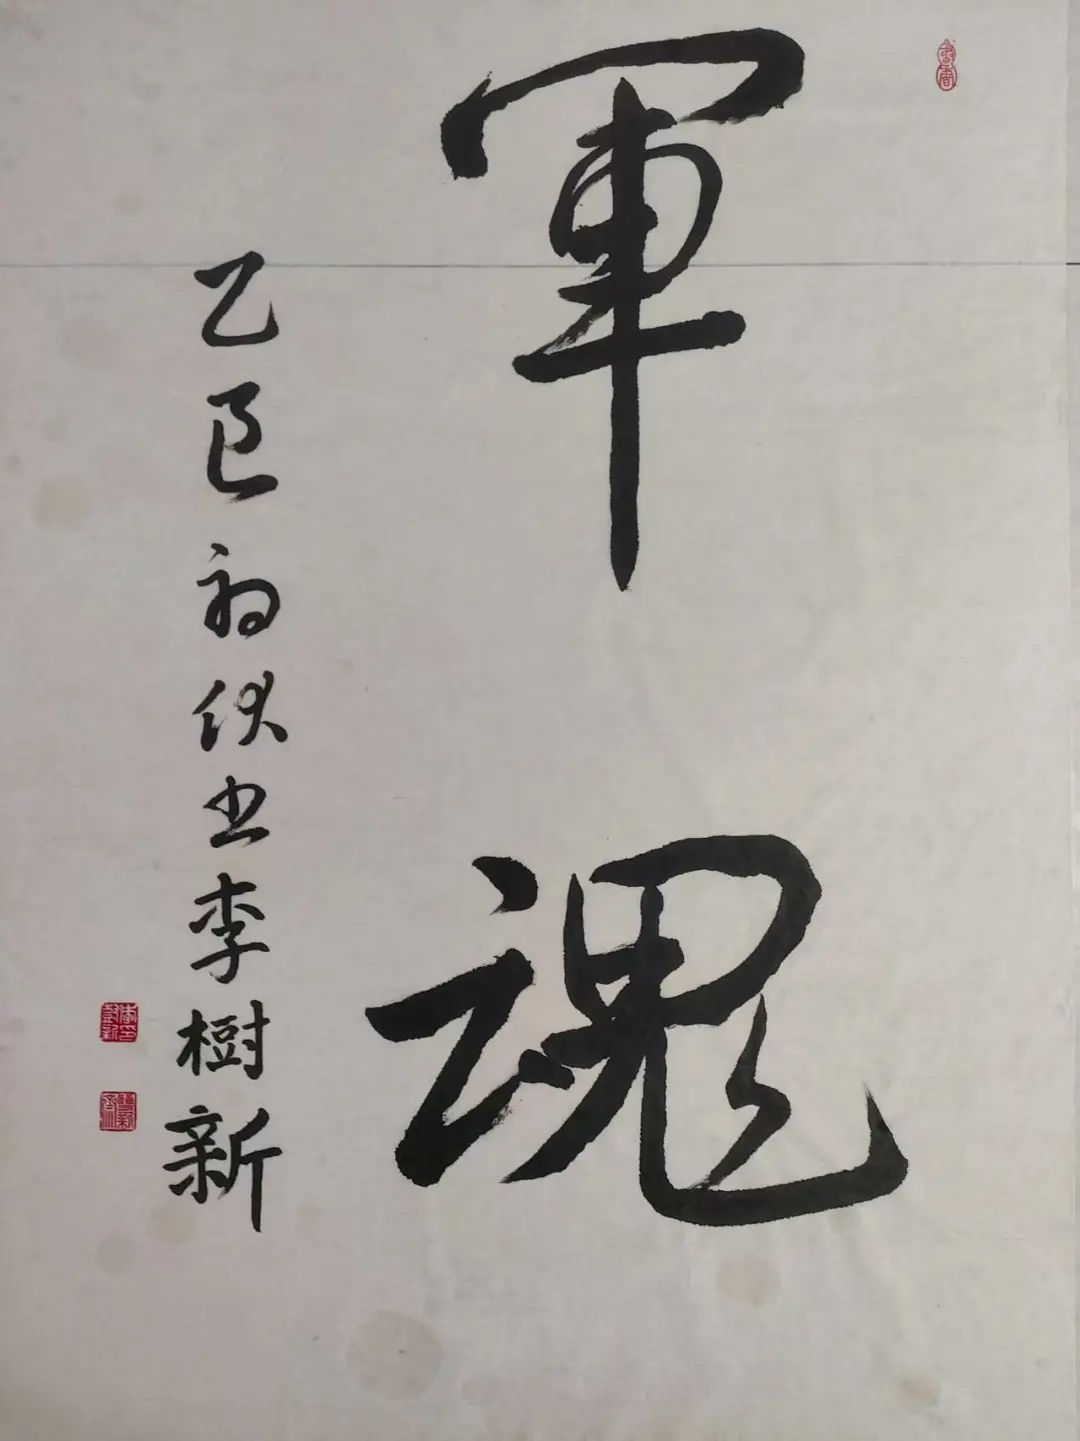 軍魂
乙巳初伏书李樹新